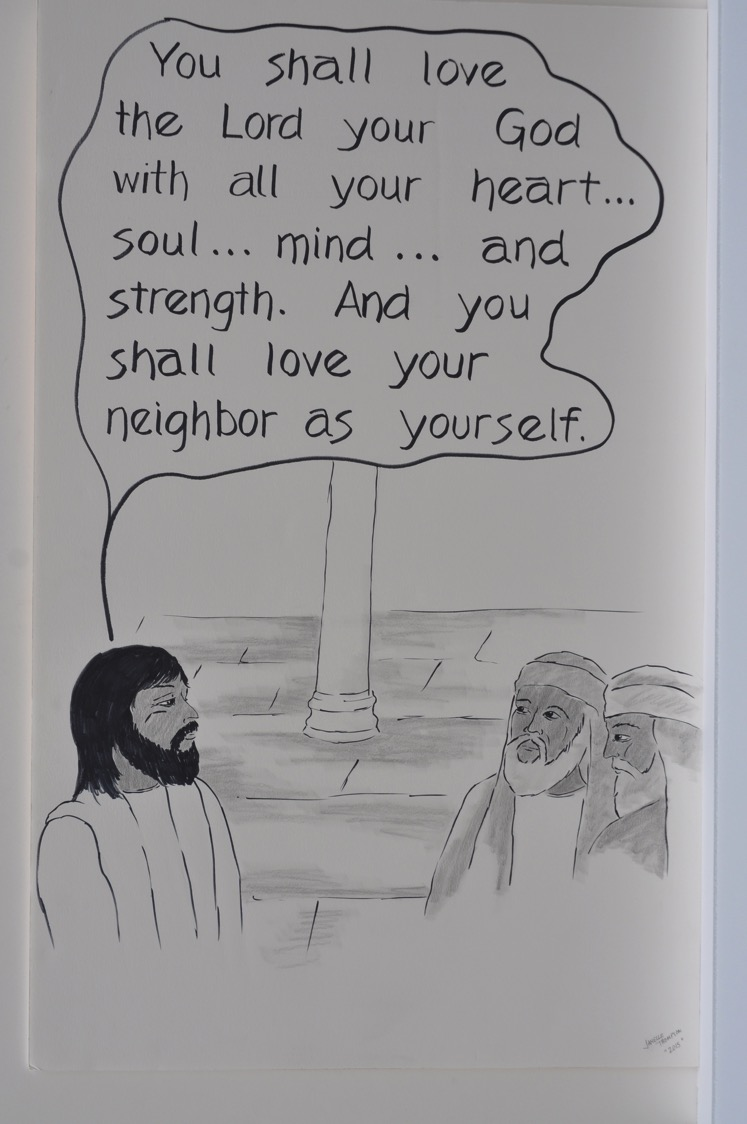 You shall love
the Lord your God
with all your heart...
soul... mind... and
strength. And you
shall love your
neighbor as yourself.